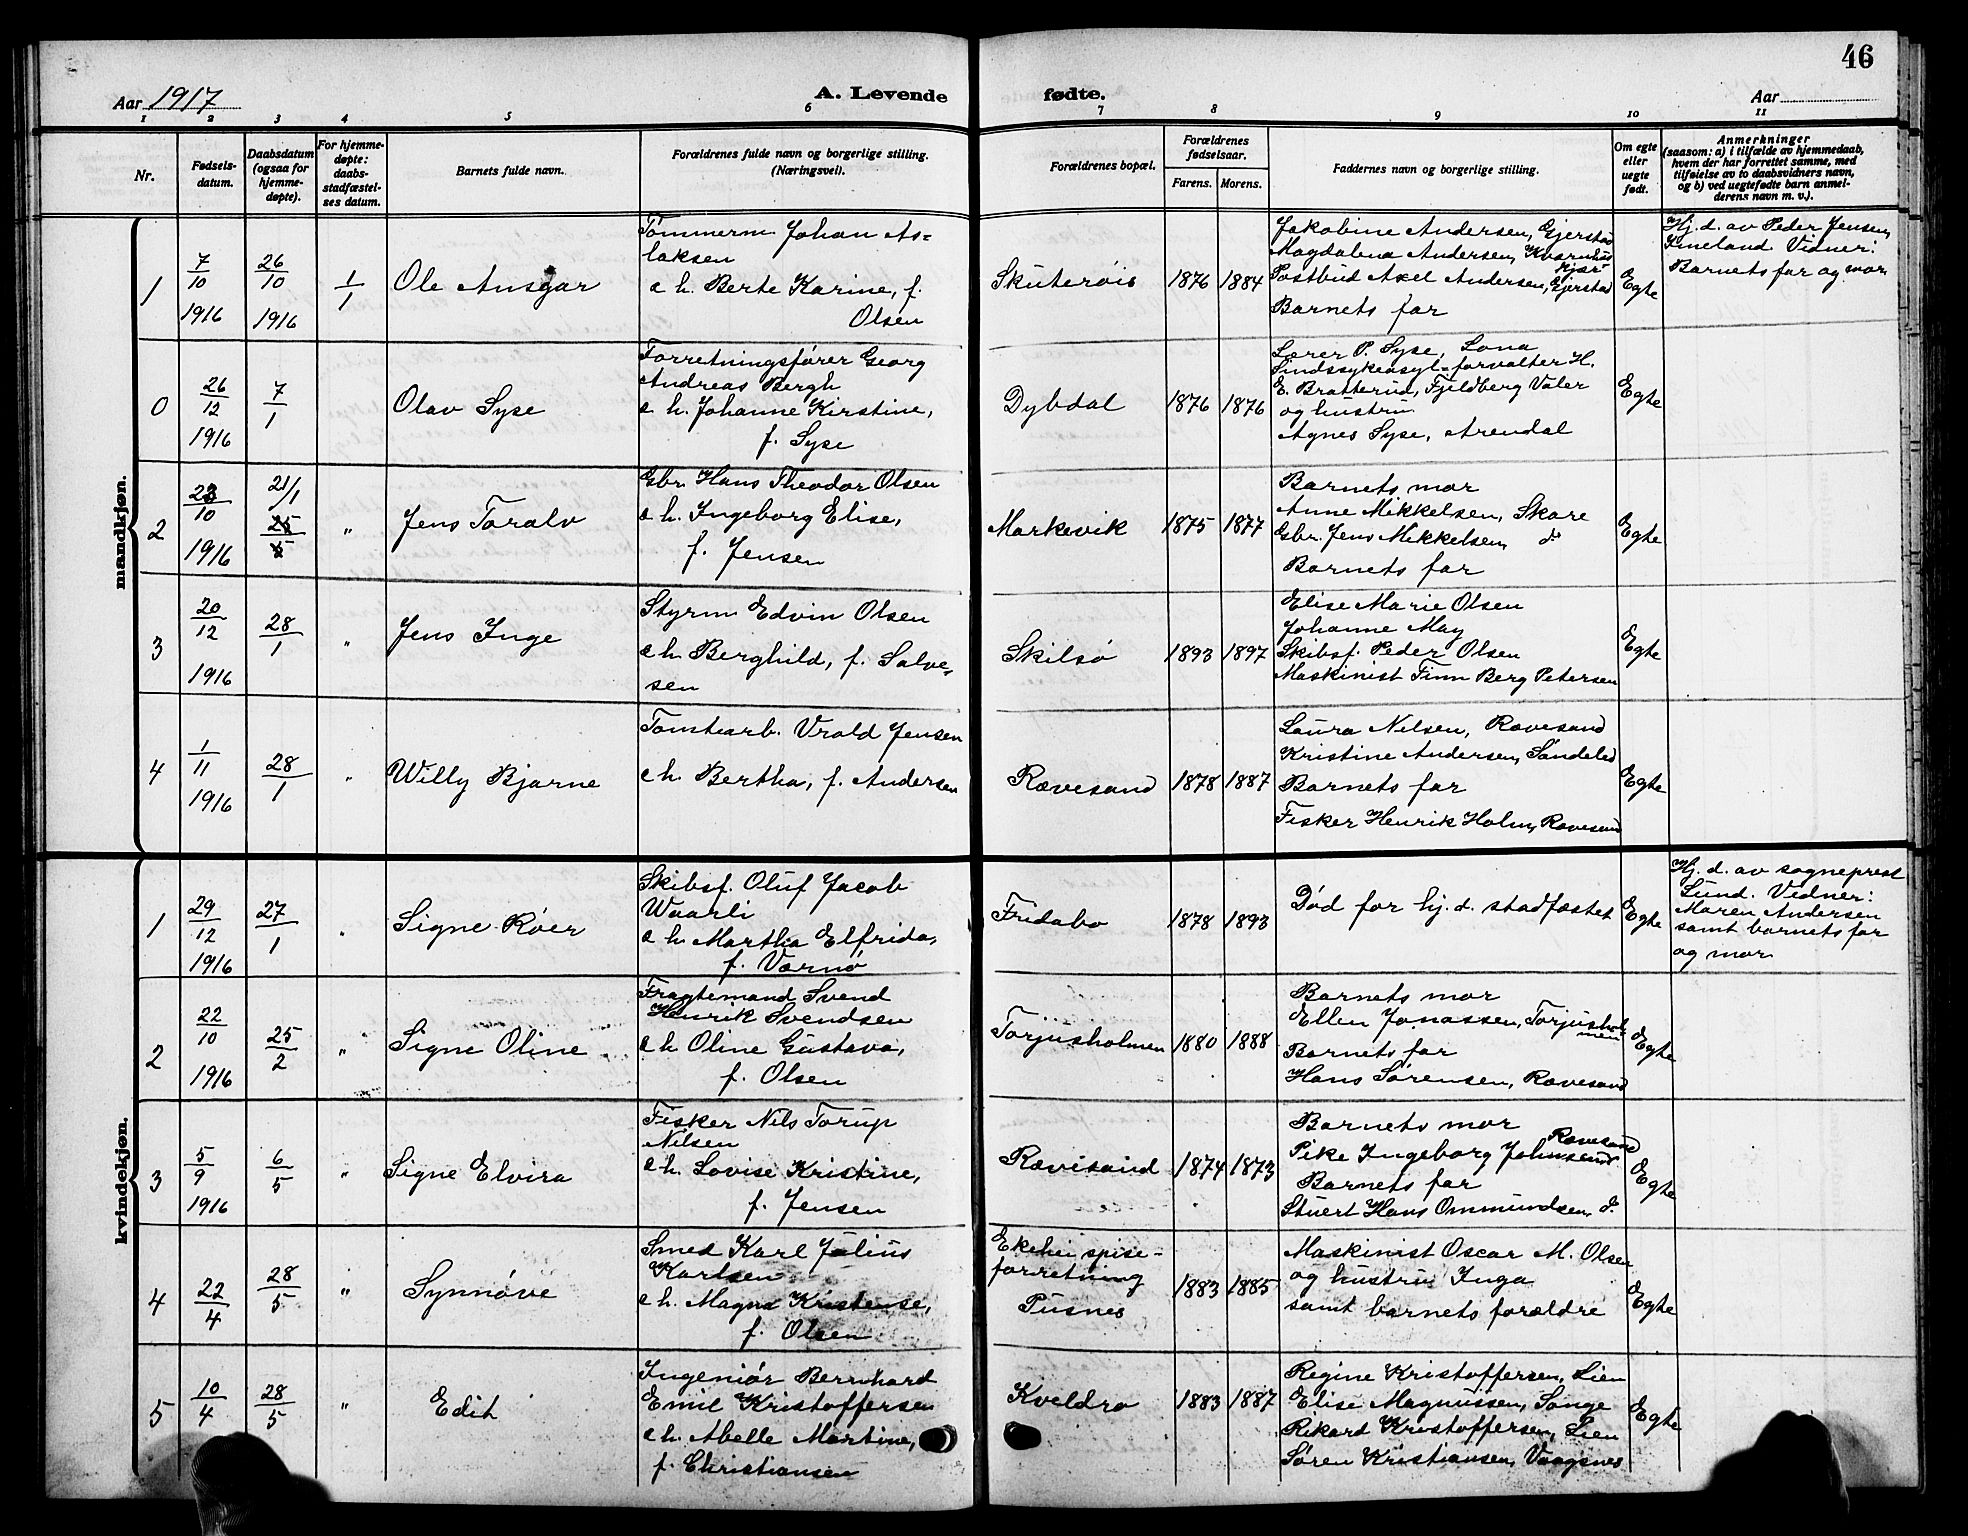 46
Aar 1917 A. Levende fødte. Aar
1 2 3 4 5 6 7 8 9 10 11
Nr.
Fødsels-
datum.
Daabsdatum
(ogsaa for
hjemme-
døpte).
For hjemme-
døpte:
daabs-
stadfæstel-
ses datum.
Barnets fulde navn.
Forældrenes fulde navn og borgerlige stilling.
(Næringsvei).
Forældrenes bopæl.
Forældrenes
fødselsaar.
Farens. Morens.
Faddernes navn og borgerlige stilling.
Om egte
eller
uegte
født.
Anmerkninger
(saasom: a) i tilfælde av hjemmedaab,
hvem der har forrettet samme, med
tilføielse av to daabsvidners navn,
og b) ved uegtefødte barn anmel-
derens navn m. v.).
mandkjøn.
1
7/10
1916
26/10
1916
1/1
Ole Ansgar
Tømmerm. Johan As=
laksen
o h. Berte Karine, f.
Olsen
Skuterøis
1876 1884
Jakobine Andersen, Gjerstad
Magdalena Andersen, Kvarnhus
kjær
Postbud Axel Andersen, Gjerstad
Barnets far
Egte
Hj. d. av Peder Jensen,
Fineland Vidner:
Barnets far og mor
0
26/12
1916
7/1
Olav Syse
Forretningsfører Georg
Andreas Bergh
o h. Johanne Kirstine,
f. Syse
Dybdal
1876 1876
Lærer P. Syse, Lona
Sindssykeasyl=forvalter H.
E. Bratterud, Fjeldberg Våler
og hustru
Agnes Syse, Arendal
Egte
2
23/10
1916
21/1
25/5
"
Jens Toralv
Gbr. Hans Theodor Olsen
o h. Ingeborg Elise,
f. Jensen
Markevik
1875 1877
Barnets mor
Anne Mikkelsen, Skare
Gbr. Jens Mikkelsen, do
Barnets far
Egte
3
20/12
1916
28/1
"
Jens Inge
Styrm Edvin Olsen
o h. Berghild, f. Salve=
sen
Skilsø
1893 1897
Elise Marie Olsen
Johanne May
Skibsf. Peder Olsen
Maskinist Finn Berg Petersen
Egte
4
1/11
1916
28/1
"
Willy Bjarne
Tomtearb. Vrald Jensen
o h. Bertha, f. Andersen
Rævesand
1878 1887
Laura Nilsen, Rævesand
Kristine Andersen, Søndeled
Barnets far
Fisker Henrik Holm, Rævesand
Egte
kvindekjøn.
1
29/12
1916
27/1
"
Signe Röer
Skibsf. Oluf Jacob
Waarli
o h. Martha Elfrida,
f. Værnø
Fridabo
1878 1893
Död før hj. d. stadfæstet
Egte
Hj. d. av sogneprest
Lund. Vidner:
Maren Andersen
samt barnets far
og mor
2
22/10
1916
25/2
"
Signe Oline
Fragtemand Svend
Henrik Svendsen
o h Oline Gustava,
f. Olsen
Torjusholmen
1880 1888
Barnets mor
Ellen Jonassen, Torjushol
men
Barnets far
Hans Sørensen, Rævesand
Egte
3
5/9
1916
6/5
"
Signe Elvira
Fisker Nils Torup
Nilsen
o h. Lovise Kristine,
f. Jensen
Rævisand
1874 1873
Barnets mor
Rævesand
Pike Ingeborg Johnsen
Barnets far
Stuert Hans Ommundsen, do
Egte
4
22/4
28/5
"
Synnøve
Smed Karl Julius
Karlsen
o h. Magna Kristense,
f. Olsen
Ekehei spise-
forretning
Pusnes
1883 1885
Maskinist Oscar M. Olsen
og hustru Inga
samt barnets forældre
Egte
5
10/4
28/5
"
Edit
Ingeniör Bernhard
Emil Kristoffersen
o h. Abelle Martine,
f. Christiansen
Kveldro
1883 1887
Regine Kristoffersen, Lien
Elise Magnussen, Songe
Rikard Kristoffersen, Lien
Søren Kristiansen, Vaagsnes
Egte